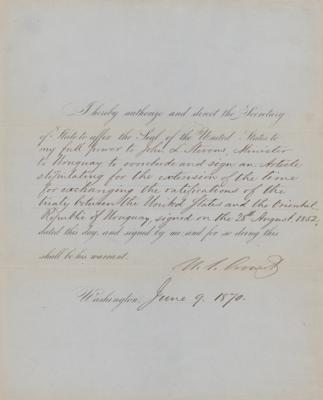 I hereby authorize and direct the Secretary
of State to affix the Seal of the United States to
my full power to John L Stevens, Minister
to Uruguay to conclude and sign an Article
stipulating for the extension of the time
for exchanging the ratifications of the
treaty between the United States and the Oriental
Republic of Uruguay, signed on the 28th August, 1852,
dated this day, and signed by me and for so doing this
shall be his warrant.
U. S. Grant
Washington, June 9, 1870.